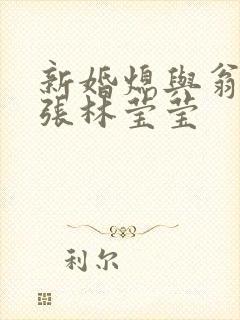 新婚熄與翁
張林莹莹
利尔